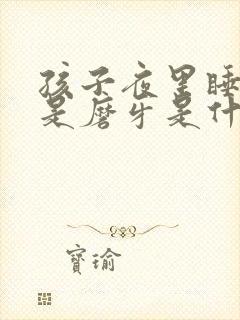 孩子夜里睡
是磨牙是什
寶瑜